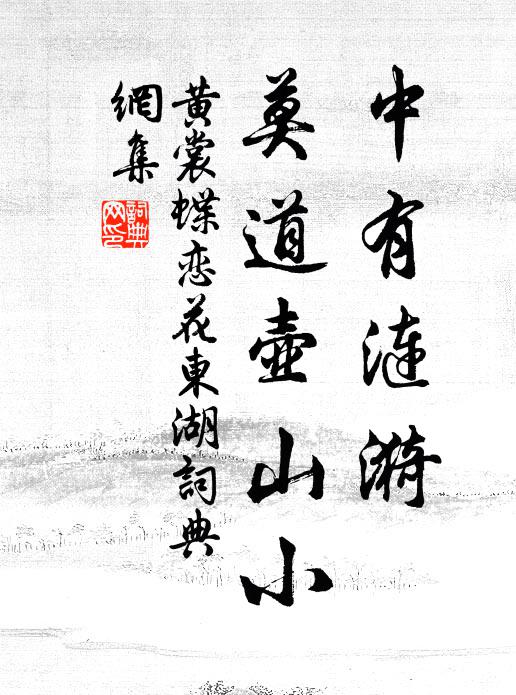 中有漣漪
莫道壺山小
黃裳蝶恋花東湖詞典
網集
詞典
網印